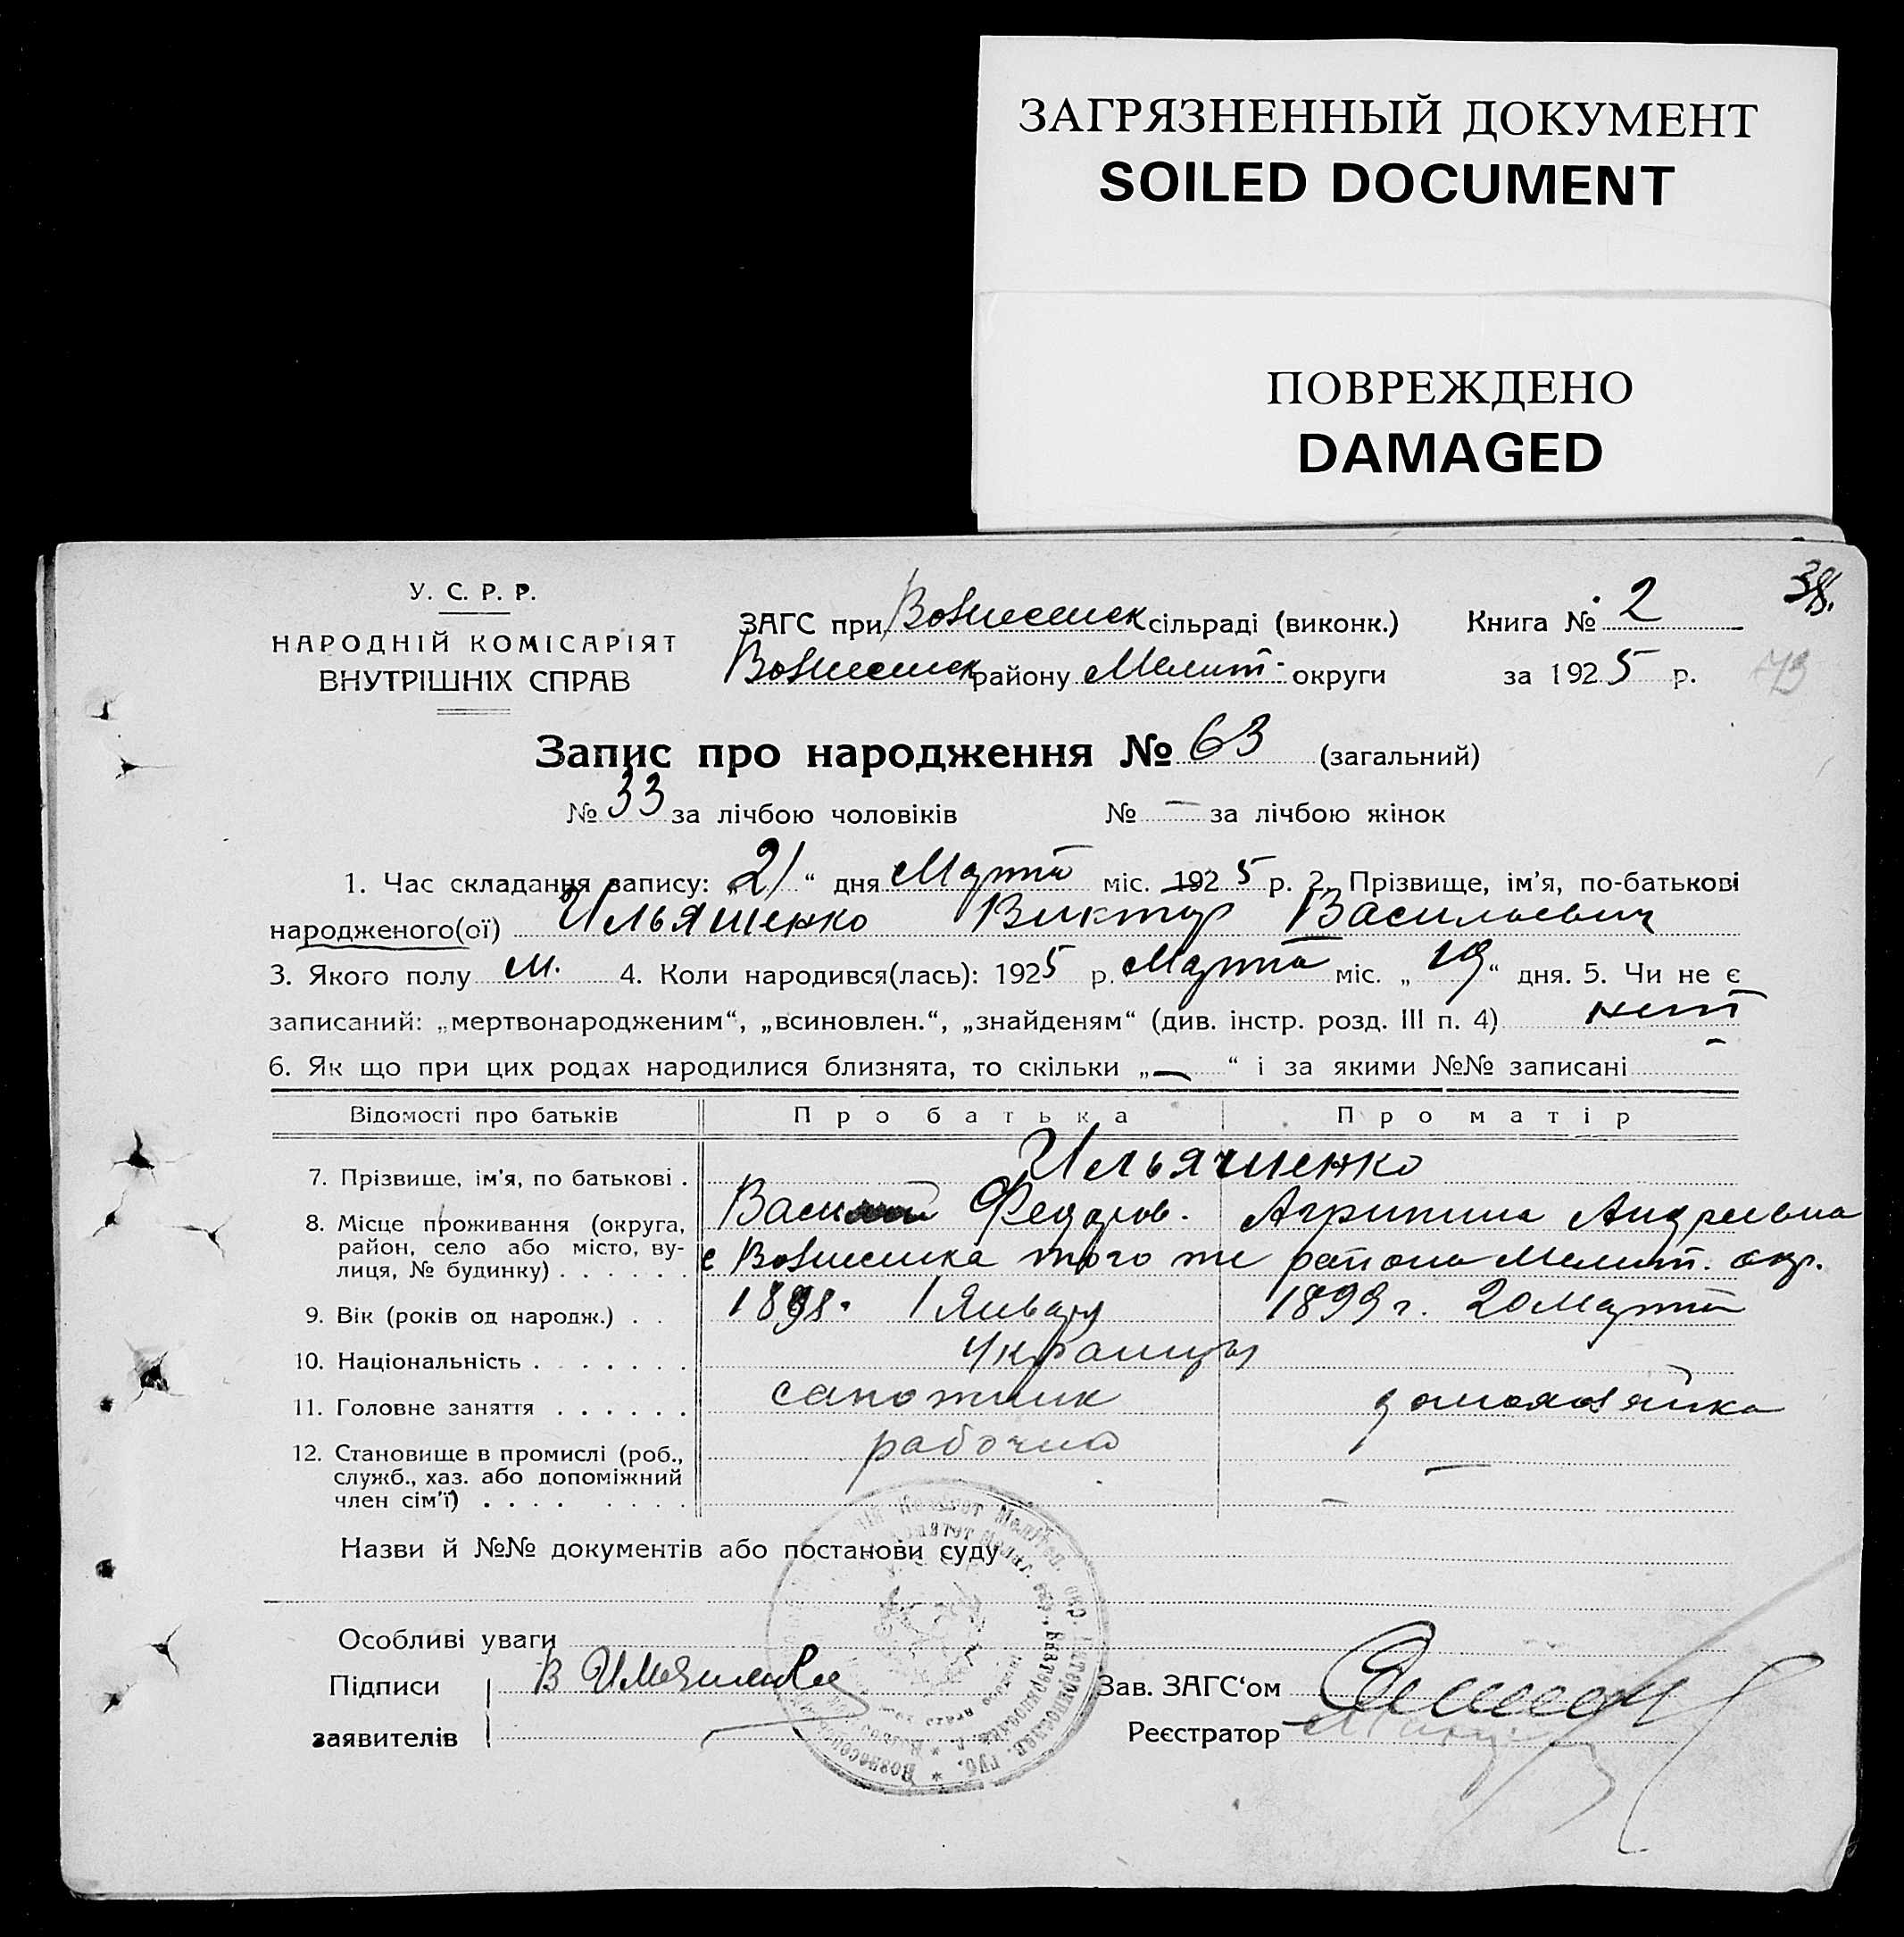 ЗАГРЯЗНЕННЫЙ ДОКУМЕНТ
SOILED DOCUMENT
ПОВРЕЖДЕНО
DAMAGED
38.
73
У. С. Р. Р.
НАРОДНІЙ КОМІСАРІЯТ
ВНУТРІШНІХ СПРАВ
ЗАГС при Вознесенск сільраді (виконк.) Книга № 2
Вознесенск району Мелит. округи за 1925 р.
Запис про народження № 63 (загальний)
№ 33 за лічбою чоловіків № — за лічбою жінок
1. Час складання запису: „21“ дня Марта міс. 1925 р. 2. Прізвище, ім'я, по-батькові
народженого(ої) Ильяшенко Виктор Васильевич
3. Якого полу м. 4. Коли народився(лась): 1925 р. Марта міс. „19“ дня. 5. Чи не є
записаний: „мертвонародженим“, „всиновлен.“, „знайденям“ (див. інстр. розд. III п. 4) нет
6. Як що при цих родах народилися близнята, то скільки „—“ і за якими №№ записані —
Відомості про батьків Про батька Про матір
7. Прізвище, ім'я, по батькові . Ильяшенко
Василий Федоров. Агрипина Андреевна
8. Місце проживання (округа, район, село або місто, вулиця, № будинку) . . . . . . с Вознесенка того же района Мелит. окр.
9. Вік (років од народж.) . . 1898. 1 Января 1899 г. 20 Марта
10. Національність . . . . . . . Украинцы
11. Головне заняття . . . . . . сапожник домохозяйка
12. Становище в промислі (роб., рабочий —
служб., хаз. або допоміжний
член сім'ї) . . . . . . . . —
Назви й №№ документів або постанови суду
Особливі уваги
Підписи В Ильяшенко Зав. ЗАГС‘ом
заявителів Реєстратор